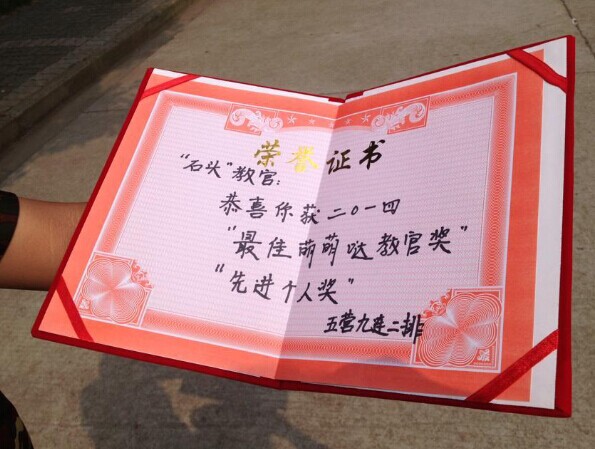 荣誉证书
“石头”教官：
恭喜你获二〇一四
“最佳萌萌哒教官奖”
“先进个人奖”
五营九连二排